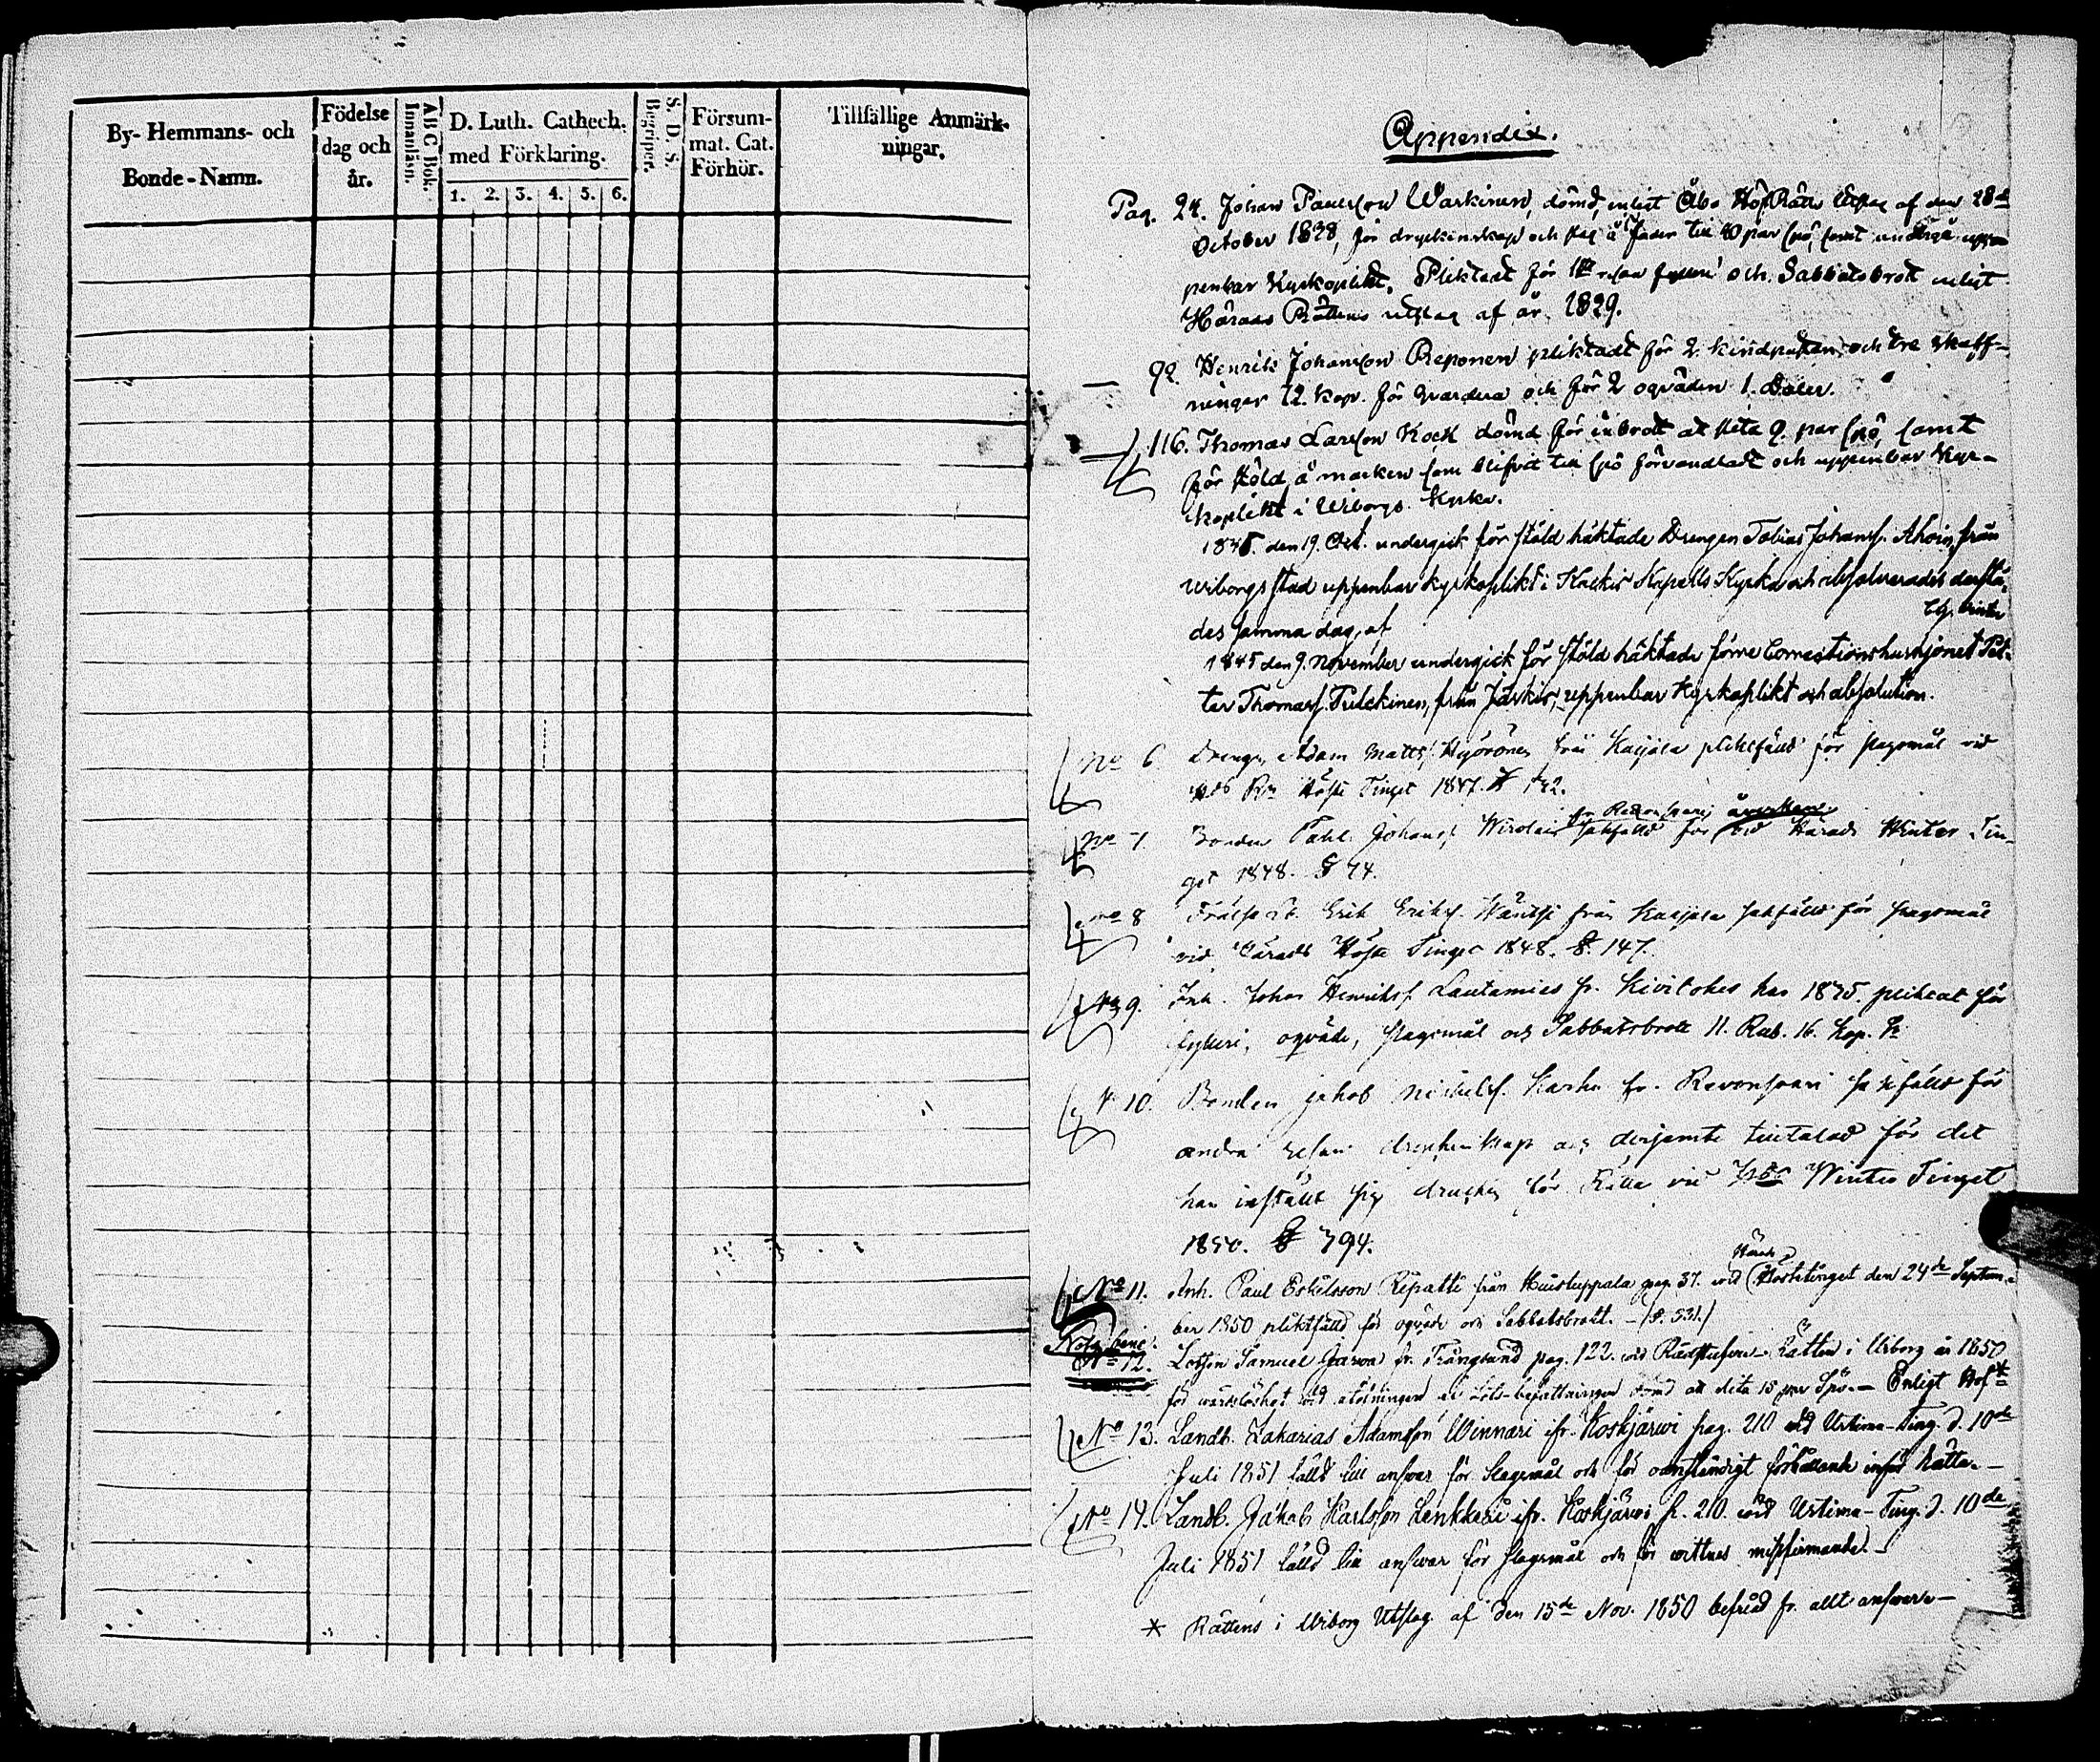 By- Hemmans- och
Bonde-Namn.
Födelse
dag och
år.
A B C Bok.
Innanläsn.
D. Luth. Cathech.
med Förklaring.
1. 2. 3. 4. 5. 6.
S. D. S.
Begriper.
Försum-
mat. Cat.
Förhör.
Tillfällige Anmärk-
ningar.
Appendix.
Pag. 24. Johan Paulsson Waskinen, dömd, enligt Åbo HofRätts utslag af den 28de
October 1828, för dryckenskap och slag å fader till 40 par spö, samt undergå uppen-
penbar Kyrkoplikt. Pliktadt för 1sta resan fylleri och Sabbatsbrott enligt
Härads Rättens utslag af år 1829.
— 92. Henrik Johansson Reponen pliktadt för 2 kindpustar och tre skuff-
ningar 72. kop. för hvardera och för 2 oqväden 1. Daler.
— 116. Thomas Larsson Kock dömd för inbrott at slita 9. par spö, samt
för stöld å marken som blifvit till spö förvandladt och uppenbar Kyr-
koplikt i Wiborgs Kyrka.
1845. den 19. Oct. undergick för stöld häktade Drengen Tobias Johanss. Ahoin, från
Wiborgs stad uppenbar kyrkoplikt i Kackis Kapells Kyrka och absolverades derstä-
des samma dag, af
1845 den 9. November undergick för stöld häktade förre Correctionshushjonet Pet-
ter Thomass. Pulckinen, från Jäskis, uppenbar Kyrkoplikt och absolution.
No 6 Drengen Adam Matts. Hyörönen från Kaijala pliktfälld för slagsmål vid
Höst Tinget 1847. § 142.
No 7 Bonden Påhl Johans. Wirolain sakfälld för vid Härads Winter Tin-
get 1848. § 74.
No 8 Erik Eriks. Wäntsi från Kaijala sakfälld för slagsmål
vid Härads Höste Tinget 1848. §. 147.
No 9. Inh. Johan Henriks. Lautamies fr. Kivilokes har 1835. pliktat för
fylleri, oqväde, slagsmål och Sabbatsbrott 11. Rub. 16. Kop. S.
No 10. Bonden Jakob Mickels. Karhu fr. Revonsaari sakfälld för
andra resan dryckenskap och derjemte tilltalad för det
han inställt sig drucken för Rätta vid Winter Tinget
1850. § 794.
Härads
No 11. Inh. Paul Eskilsson Repatti från Huistuppala pag. 37. vid Hösttinget den 24de Septem-
ber 1850 pliktfälld för oqväde och Sabbatsbrott. – (§. 531.)
Nota bene.
No 12. Lotsen Samuel Jarwa fr. Trångsund pag. 122. vid Rådstufvu-Rätten i Wiborg år 1850
för vårdslöshet vid utöfningen af Lots-befattningen dömd att slita 15 par Spö. – Enligt Hof*
No 13. Landb. Zakarias Adamsson Winnari ifr. Koskijärwi pag. 210 vid Urtima-Ting d. 10de
Juli 1851 fälld till answar för Slagsmål och för oanständigt förhållande inför Rätta. –
No 14. Landb. Jakob Karlsson Henkkeri ifr. Koskijärwi p. 210. vid Urtima-Ting d. 10de
Juli 1851 fälld till answar för slagsmål och för wittnes missfirmande. –
* Rättens i Wiborg Utslag af den 15de Nov. 1850 befriad fr. allt answar. –